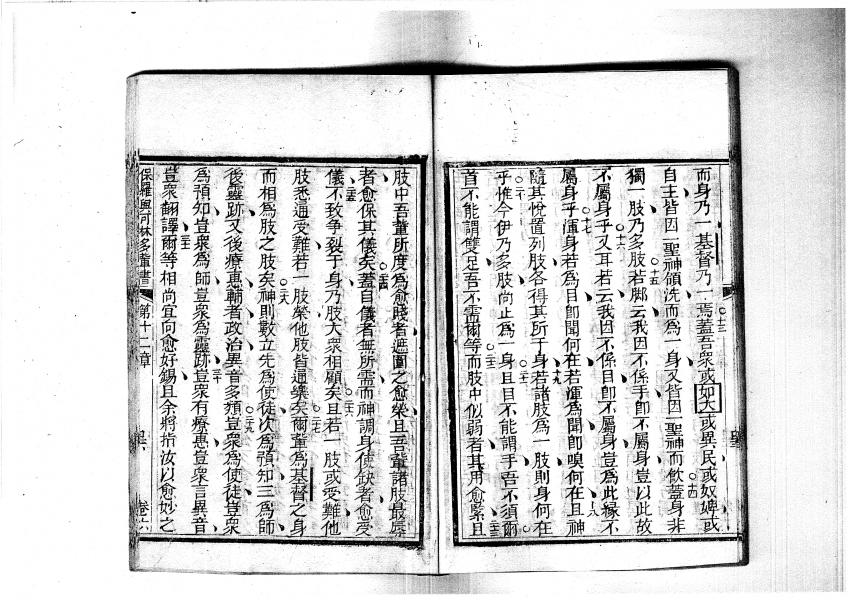 而身乃一基督乃一焉○十三蓋吾衆或如大或異民或奴婢或
自主皆因一聖神領洗而爲一身又皆因一聖神而飲○十四蓋身非
獨一肢乃多肢○十五若脚云我因不係手卽不屬身豈以此故
不屬身乎○十六又耳若云我因不係目卽不屬身豈爲此緣不
屬身乎○十七渾身若爲目卽聞何在若渾爲聞卽嗅何在○十八且神
隨其悅置列肢各得其所于身○十九若諸肢爲一肢則身何在
乎○二十惟今伊乃多肢尚止爲一身○二一且目不能謂手吾不須爾
首不能謂雙足吾不需爾等○二二而肢中似弱者其用愈緊○二三且
肢中吾輩所度爲愈賤者遮圍之愈榮且吾輩諸肢最辱
者愈保其儀矣○二四蓋自儀者無所需而神調身使缺者愈受
儀○二五不致爭裂于身乃肢大衆相顧矣○二六且若一肢或受難他
肢悉通受難若一肢榮他肢皆通樂矣○二七爾輩爲基督之身
而相爲肢之肢矣○二八神則數立先爲使徒次爲預知三爲師
後靈跡又後療惠輔者政治異音多類○二九豈衆爲使徒豈衆
爲預知豈衆爲師豈衆爲靈跡○三十豈衆有療惠豈衆言異音
豈衆翻譯○三一爾等相尚宜向愈好錫且余將指汝以愈妙之
保羅與可林多輩書 第十二章 卷六